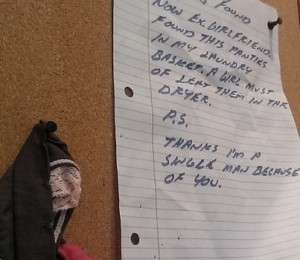 FOUND
NOW EX-GIRLFRIEND
FOUND THIS PANTIES
IN MY LAUNDRY
BASKET. A GIRL MUST
OF LEFT THEM IN THE
DRYER.
P.S.
THANKS I'M A
SINGLE MAN BECAUSE
OF YOU.